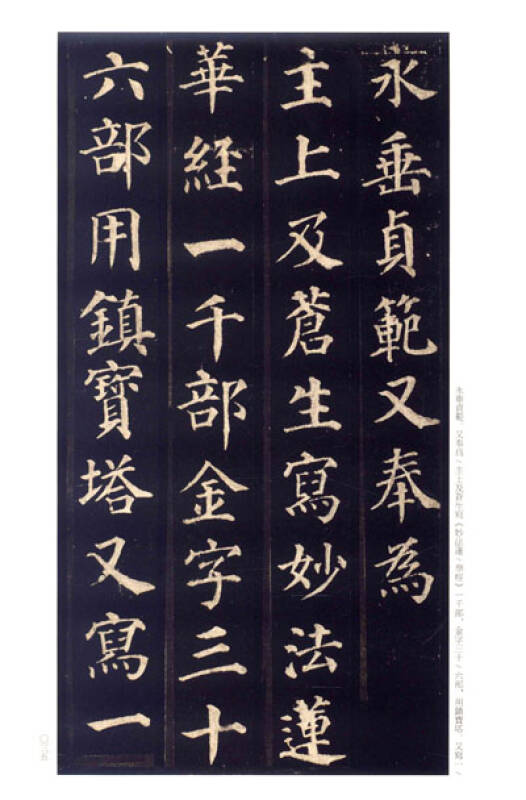 永垂貞範又奉為
主上及蒼生寫妙法蓮
華經一千部金字三十
六部用鎮寶塔又寫一
永垂貞範。又奉爲／主上及蒼生寫《妙法蓮／華經》一千部，金字三十／六部，用鎮寶塔。又寫一／
〇三五